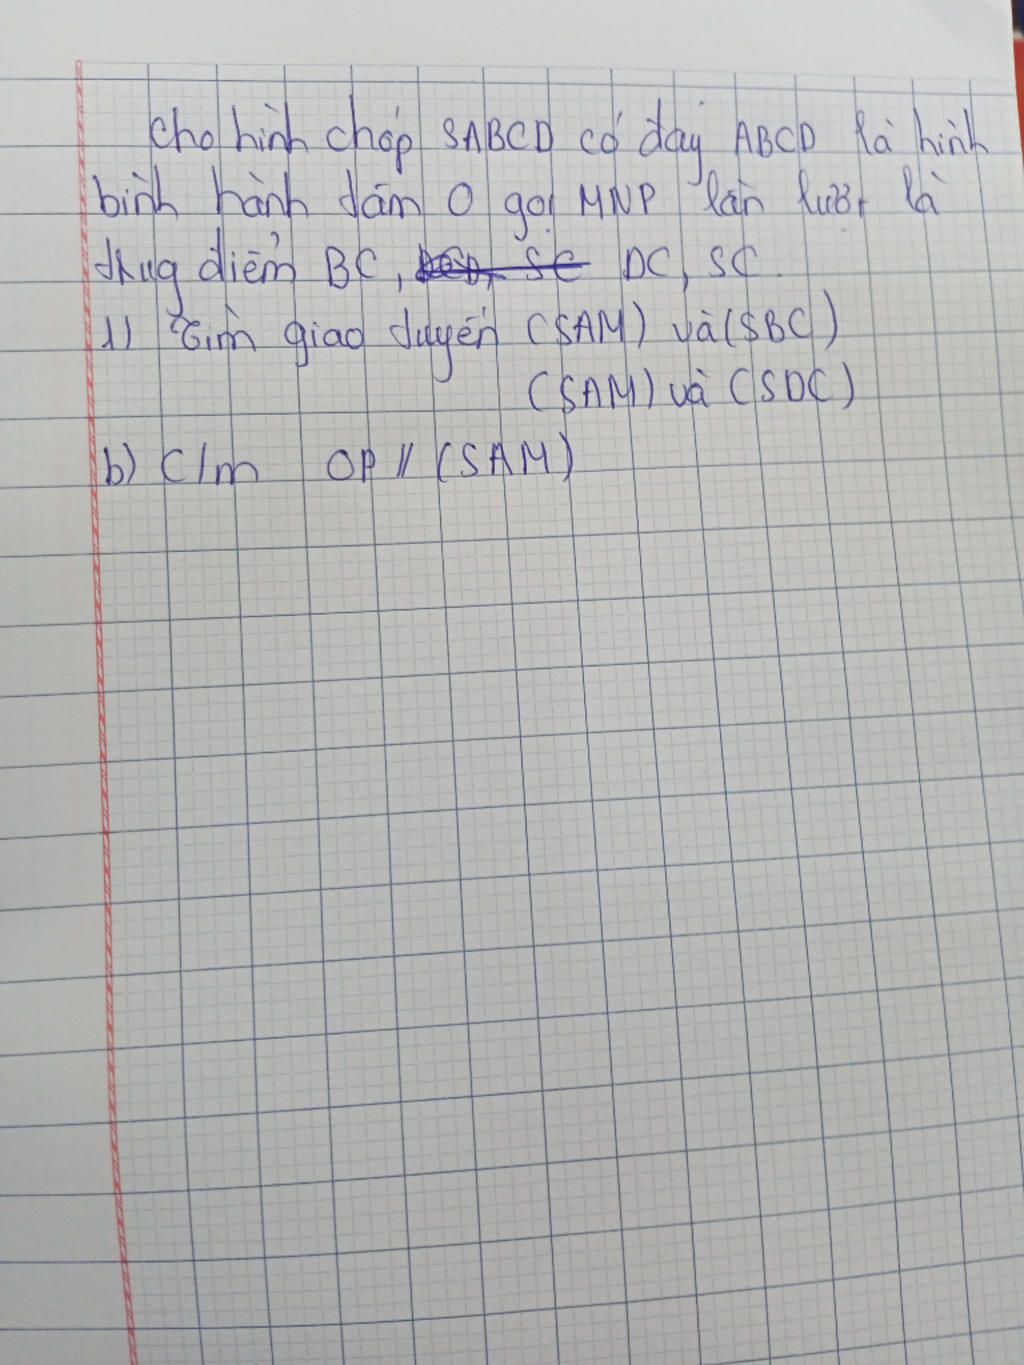 Cho hình chóp SABCD có đáy ABCD là hình
bình hành tâm O gọi MNP lần lượt là
trug điểm BC, DC, SC.
1) Tìm giao tuyến (SAM) và (SBC)
(SAM) và (SDC)
b) C/m OP // (SAM)